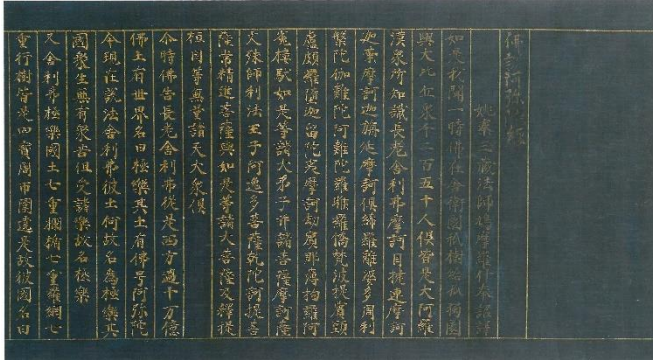 佛說阿弥陀經
姚秦三藏法師鳩摩羅什奉詔譯
如是我聞一時佛在舍衛國祇樹給孤獨園
與大比丘衆千二百五十人俱皆是大阿羅
漢衆所知識長老舍利弗摩訶目揵連摩訶
迦葉摩訶迦旃延摩訶俱絺羅離婆多周利
槃陀伽難陀阿難陀羅睺羅憍梵波提賓頭
盧頗羅墮迦留陀夷摩訶劫賓那薄拘羅阿
㝹樓馱如是等諸大弟子并諸菩薩摩訶薩
文殊師利法王子阿逸多菩薩乾陀訶提菩
薩常精進菩薩與如是等諸大菩薩及釋提
桓因等無量諸天大衆俱
尒時佛告長老舍利弗從是西方過十万億
佛土有世界名曰極樂其土有佛号阿弥陀
今現在說法舍利弗彼土何故名為極樂其
國衆生無有衆苦但受諸樂故名極樂
又舍利弗極樂國土七重欄楯七重羅網七
重行樹皆是四寶周帀圍遶是故彼國名曰